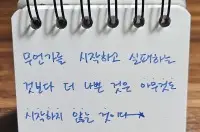 무언가를 시작하고 실패하는
것보다 더 나쁜 것은 아무것도
시작하지 않는 것이다